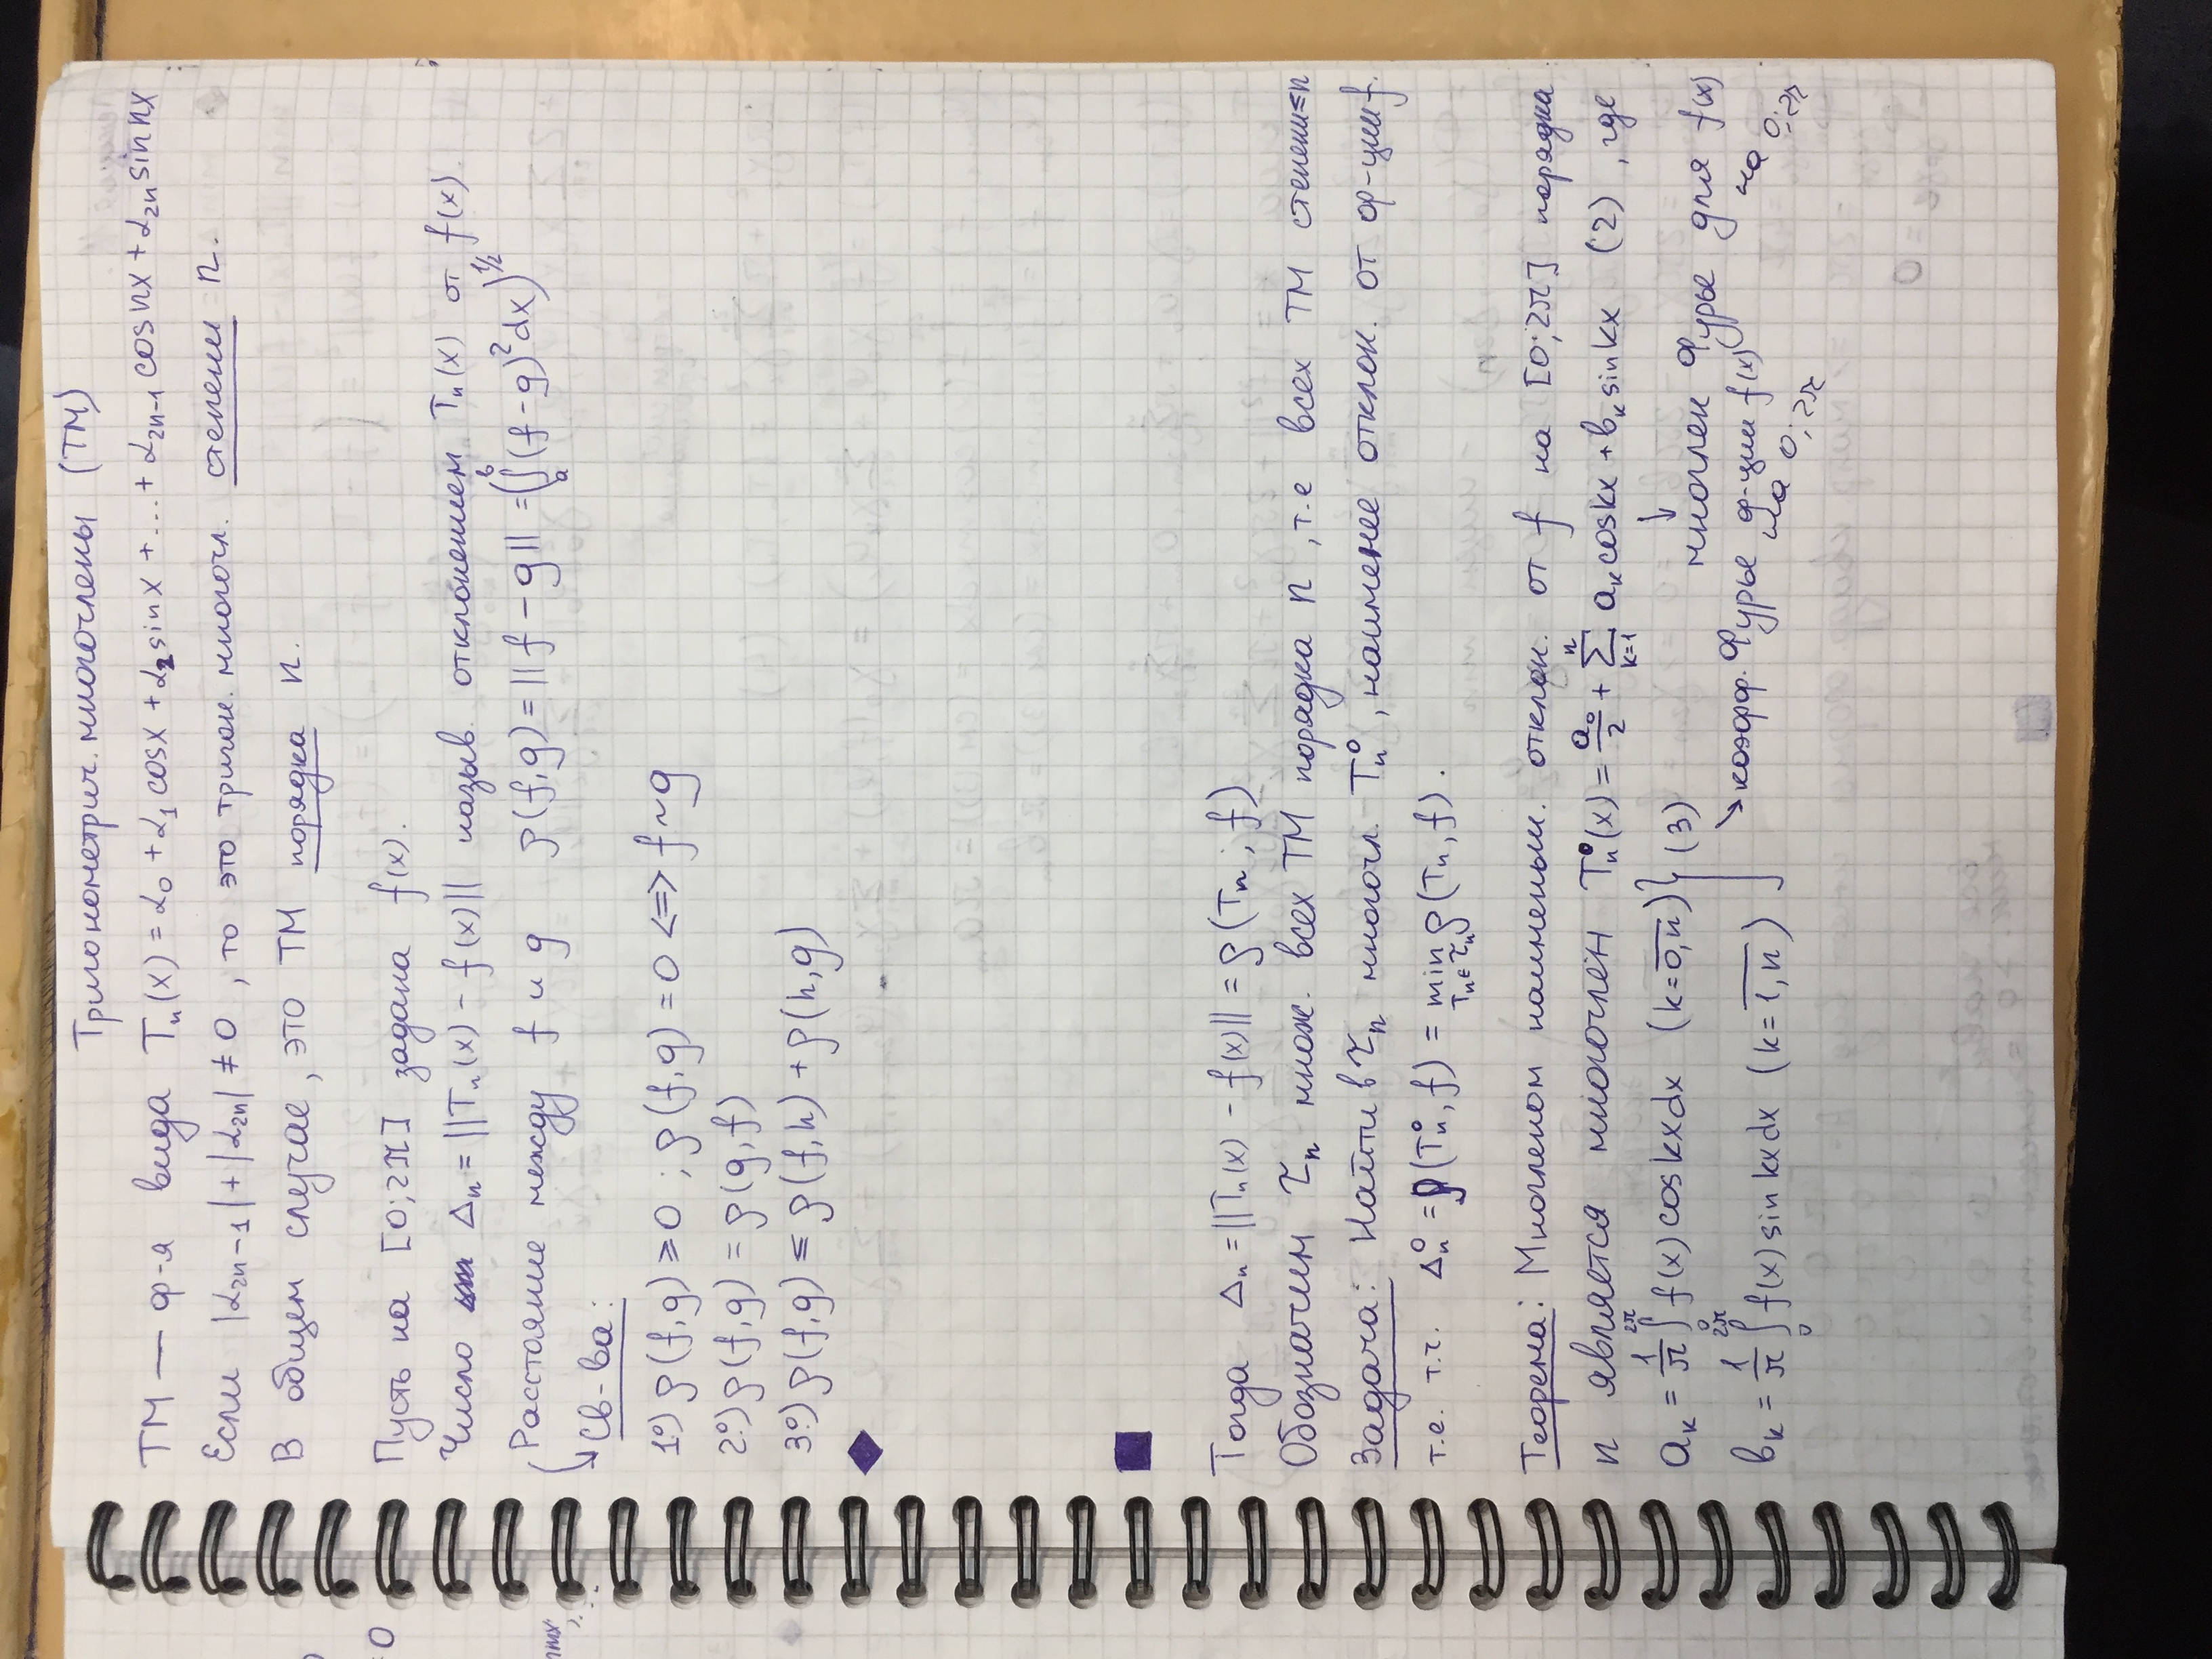 Тригонометрич. многочлены (ТМ)
ТМ — ф-я вида Tₙ(x) = α₀ + α₁ cosx + α₂ sinx + ... + α₂ₙ₋₁ cos nx + α₂ₙ sin nx
Если |α₂ₙ₋₁| + |α₂ₙ| ≠ 0, то это тригон. многочл. степени n.
В общем случае, это ТМ порядка n.
Пусть на [0;2π] задана f(x).
Число Δₙ = ||Tₙ(x) - f(x)|| назыв. отклонением Tₙ(x) от f(x).
Расстояние между f и g ρ(f,g) = ||f - g|| = (∫ₐᵇ (f-g)² dx)^1/2
Св-ва:
1°) ρ(f,g) ⩾ 0 ; ρ(f,g) = 0 <=> f ~ g
2°) ρ(f,g) = ρ(g,f)
3°) ρ(f,g) ⩽ ρ(f,h) + ρ(h,g)
Тогда Δₙ = ||Tₙ(x) - f(x)|| = ρ(Tₙ ; f)
Обозначим τₙ множ. всех ТМ порядка n, т.е всех ТМ степени ⩽ n
Задача: Найти в τₙ многочл. Tₙ⁰, наименее отклон. от ф-ции f.
т.е. т.ч. Δₙ⁰ = ρ(Tₙ⁰, f) = min_{Tₙ ∈ τₙ} ρ(Tₙ, f).
Теорема: Многленом наименьш. отклон. от f на [0;2π] порядка
n является многочлен Tₙ⁰(x) = a₀/2 + Σ_{k=1}^{n} aₖ cos kx + bₖ sin kx (2), где
aₖ = 1/π ∫₀^{2π} f(x) cos kx dx (k = 0,n) } (3)
↓ многлен Фурье для f(x) на 0;2π
↘ коэфф. Фурье ф-ции f(x) на 0;2π
bₖ = 1/π ∫₀^{2π} f(x) sin kx dx (k = 1,n)